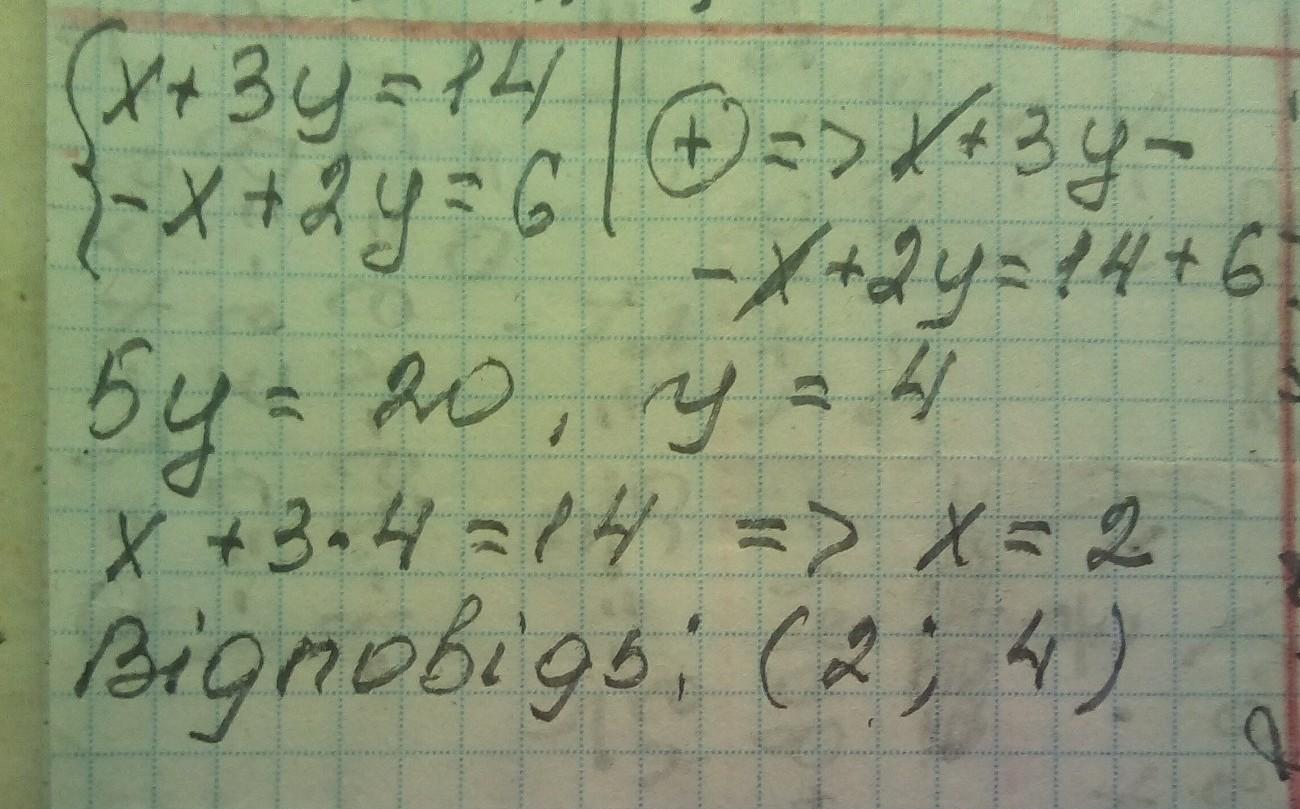 x + 3y = 14 | ⊕ => x + 3y -
- x + 2y = 6 | - x + 2y = 14 + 6
5y = 20, y = 4
x + 3·4 = 14 => x = 2
Відповідь: (2; 4)